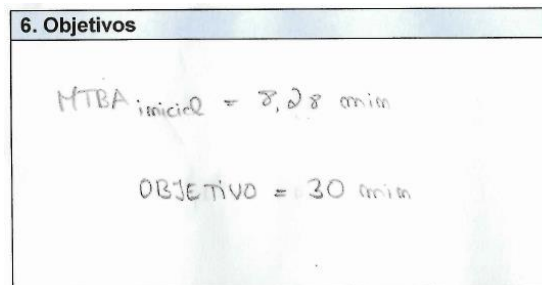 6. Objetivos
MTBA inicial = 8,28 min
OBJETIVO = 30 min